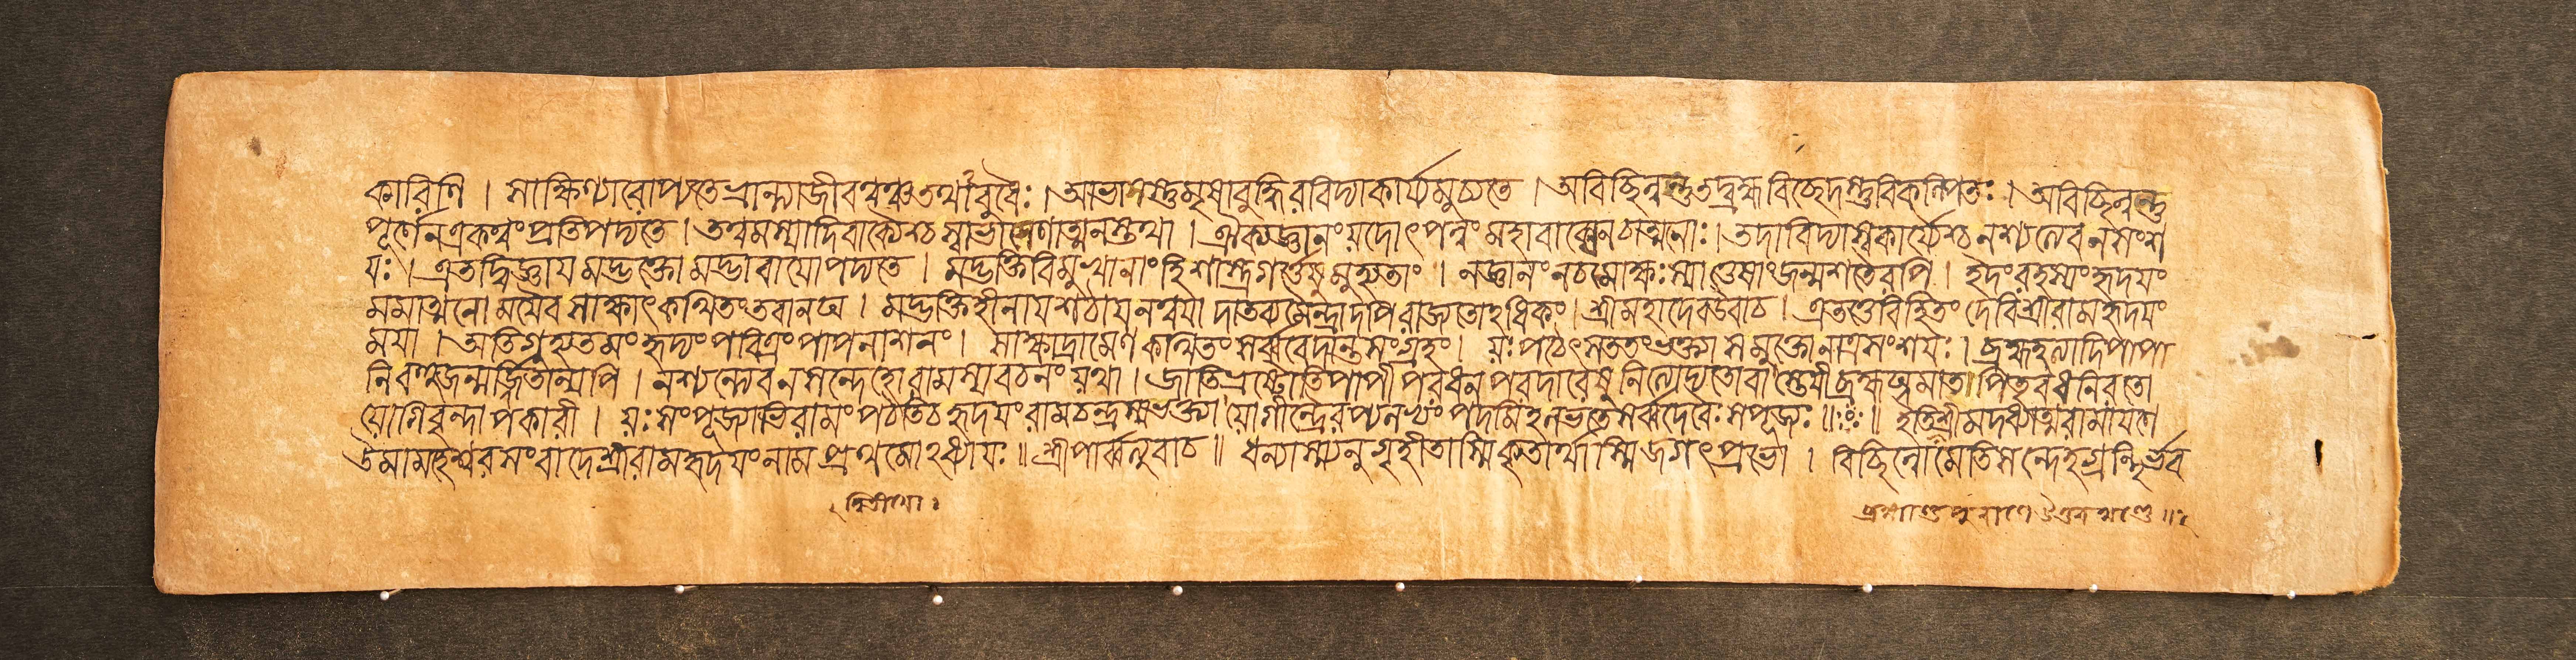 কারিণি । সাক্ষিণ্যারোপ্যতেভ্রান্ত্যাজীবত্বঞ্চতথাবুধৈঃ । আভাসস্তুমৃষাবুদ্ধিরবিদ্যাকার্য্যমুচ্যতে । অবিচ্ছিন্নন্তুতদ্ব্রহ্মবিচ্ছেদস্তুবিকল্পিতঃ । অবিচ্ছিন্নন্তু
পূর্ণেনএকত্বংপ্রতিপদ্যতে । তত্বমস্যাদিবাক্যৈশ্চ । ঐক্যজ্ঞানংয়দোৎপন্নং মহাবাক্যেনচাত্মনোঃ । তদাবিদ্যাস্বকার্য্যৈশ্চনশ্যত্যেবনসংশ
য়ঃ । এতদ্বিজ্ঞায়মদ্ভক্তোমদ্ভাবায়োপদ্যতে । মদ্ভক্তিবিমুখানাংহিশাস্ত্রেগর্ত্তেষুমুহ্যতাং । নজ্ঞানংনচমোক্ষঃস্যাত্তেষাংজন্মশতৈরপি । ইদংরহস্যংহৃদয়ং
মমাত্মনোময়ৈবসাক্ষাৎকথিতংতবানঘ । মদ্ভক্তিহীনায়শঠায়নত্বয়া দাতব্যমৈন্দ্রাদপিরাজ্যতোঽধিকং । শ্রীমহাদেবউবাচ । এতত্তেবিহিতং দেবিশ্রীরামহৃদয়ং
ময়া । অতিগুহ্যতমংহৃদ্যংপবিত্রংপাপনাশনং । সাক্ষাদ্রামেণকথিতংসর্ব্ববেদান্তসংগ্রহং । য়ঃপঠেৎসততংভক্ত্যাসমুক্তোনাত্রসংশয়ঃ । ব্রহ্মহত্যাদিপাপা
নিবহুজন্মার্জ্জিতান্যপি । নশ্যন্ত্যেবনসন্দেহোরামস্যবচনংয়থা । জাতিভ্রষ্টোতিপাপীপরধনপরদারেষুনিত্যোদ্যতোবাস্তেয়ীব্রহ্মঘ্নমাতাপিতৃবধনিরতো
য়োগিবৃন্দাপকারী । য়ঃসংপূজ্যাভিরামংপঠতিচহৃদয়ংরামচন্দ্রস্যভক্ত্যা য়োগীন্দ্রৈরপ্যলভ্যংপদমিহলভতেসর্ব্বদেবৈঃসপূজ্যঃ ॥ ॥ ইতিশ্রীমদধ্যাত্মরামায়ণে
উমামহেশ্বরসংবাদেশ্রীরামহৃদয়ংনামপ্রথমোঽধ্যায়ঃ ॥ শ্রীপার্ব্বত্যুবাচ ॥ ধন্যাস্ম্যনুগৃহীতাস্মিকৃতার্থাস্মিজগৎপ্রভো । বিচ্ছিন্নোমেতিসন্দেহগ্রন্থির্ভব
ব্রহ্মাণ্ডপুরাণেউত্তরখণ্ডে ॥